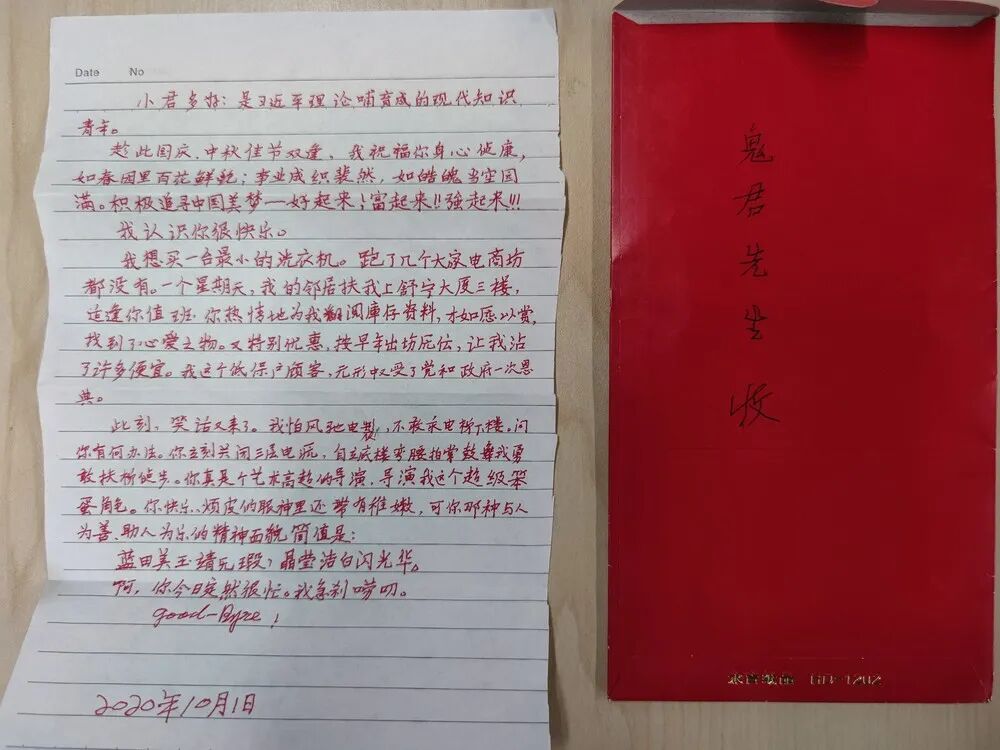 Date No
小君多好：是习近平理论哺育成的现代知识
青年。
趁此国庆、中秋佳节双逢，我祝福你身心健康，
如春园里百花鲜艳；事业成织裴然，如皓魄当空圆
满。积极追寻中国美梦一好起来！富起来！！强起来！！！
我认识你很快乐。
我想买一台最小的洗衣机。跑了几个大家电商坊
都没有。一个星期天，我的邻居扶我上舒宁大厦三楼，
适逢你值班。你热情地为我翻阅库存资料，才如愿以赏，
找到了心爱之物。又特别优惠，按早年出坊价，让我沾
了许多便宜。我这个低保户顾客，无形中又受了党和政府一次恩
典。
此刻，笑话又来了。我怕风驰电掣，不敢乘电梯下楼。问
你有何办法。你立刻关闭三层电源，自立底楼弯腰拍掌鼓舞我勇
敢扶梯徒步。你真是个艺术高超的导演，导演我这个超级笨
蛋角色。你快乐、烦皮的眼神里还带有稚嫩，可你那种与人
为善、助人为乐的精神面貌简值是：
蓝田美玉靖无瑕，晶莹洁白闪光华。
啊，你今日突然很忙。我急刹唠叨。
good-Byze！
2020年10月1日
鬼
君
先
生
收